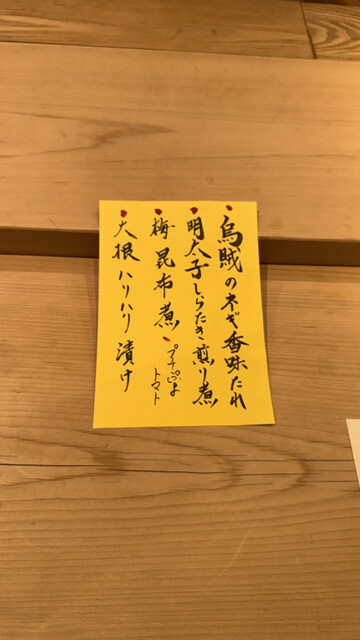 烏賊のネギ香味たれ
明太子しらたき煎り煮
梅昆布煮
プチぷよ
トマト
大根ハリハリ漬け